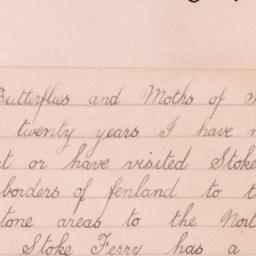 Butterflies and Moths of
twenty years I have
or have visited Stoke
borders of fenland to
areas to the
Stoke Ferry has a